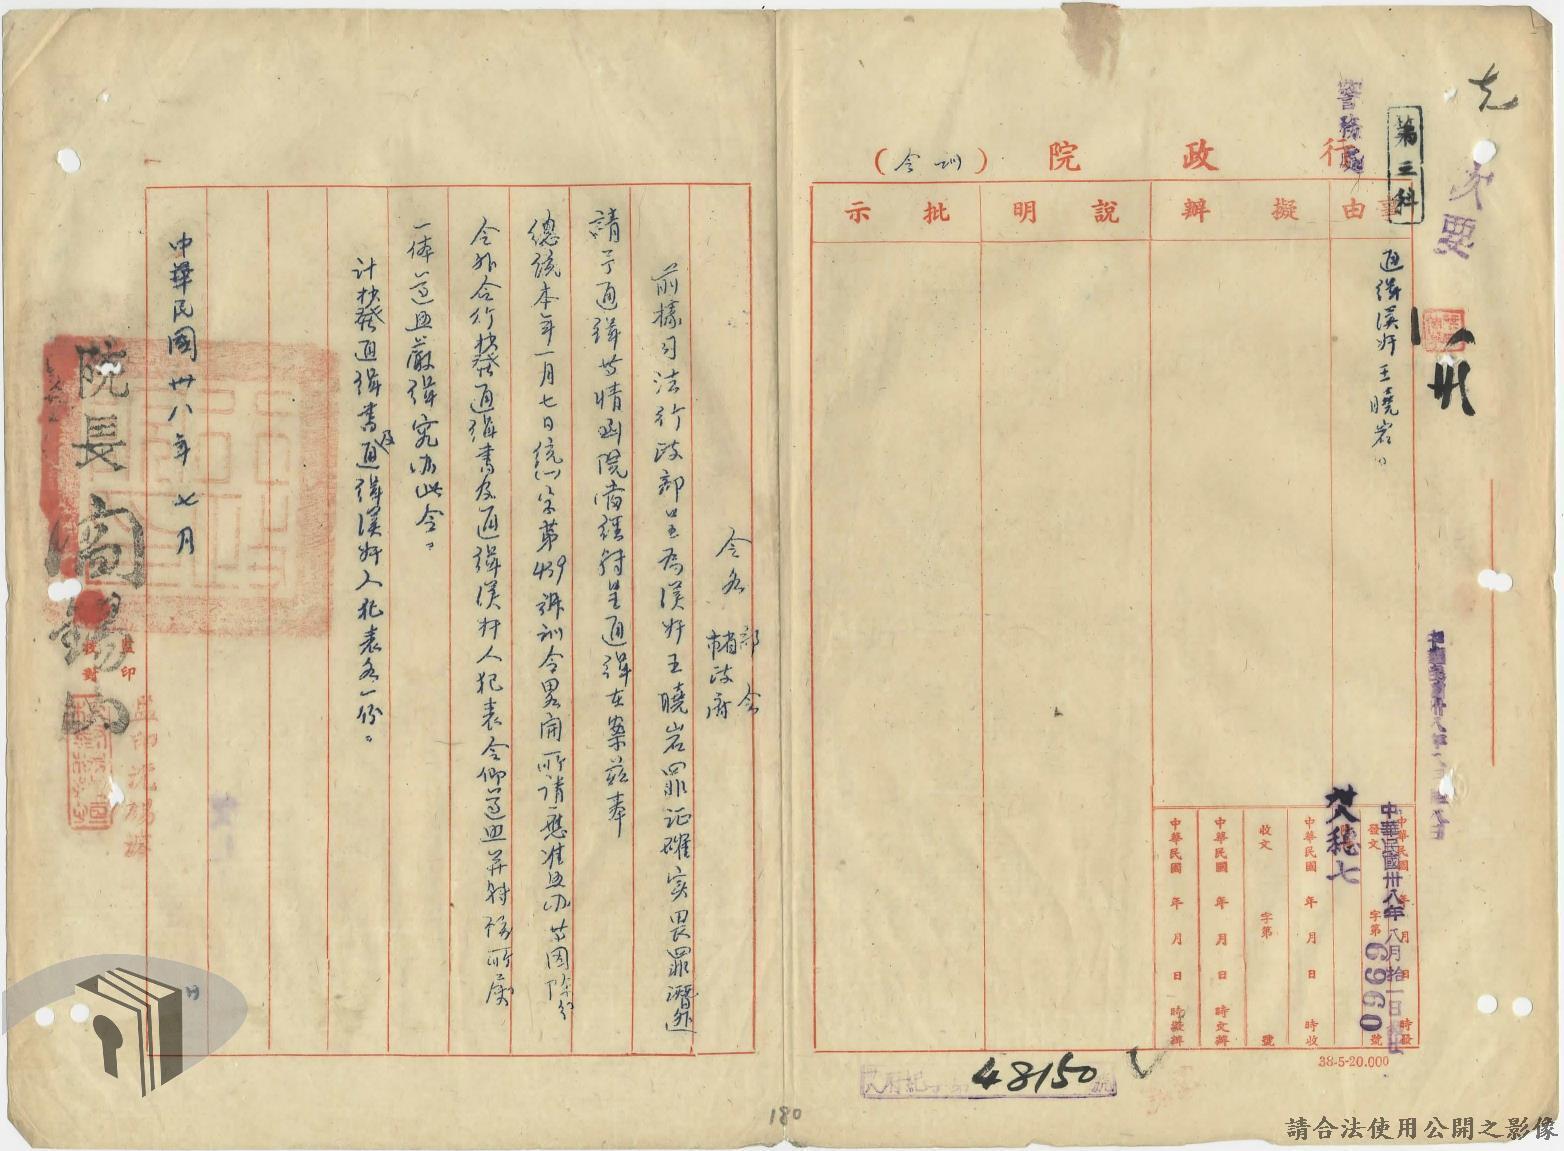 行政院（訓令）
事由
擬辦
說明
批示
第三科
警務處
次要
通緝漢奸王曉岩。
穗七
中華民國卅八年八月拾一日
06990
發文
字第
號
中華民國 年 月 日 時收
收文
字第
號
中華民國 年 月 日 時交辦
中華民國 年 月 日 時擬辦
38-5-20.000
48150
180
令各
部會
省市政府
前據司法行政部呈為漢奸王曉岩罪证確实畏罪潛逃
請予通緝等情到院當經轉呈通緝在案茲奉
總統本年一月七日統㈠字第439號訓令畧開所請應准照办等因除分
令外合行抄發通緝書及通緝漢奸人犯表令仰遵照并轉飭所屬
一体遵照嚴緝究办此令。
計抄發通緝書及通緝漢奸人犯表各一份。
中華民國卅八年七月
日
院長閻錫山
監印
校對
請合法使用公開之影像